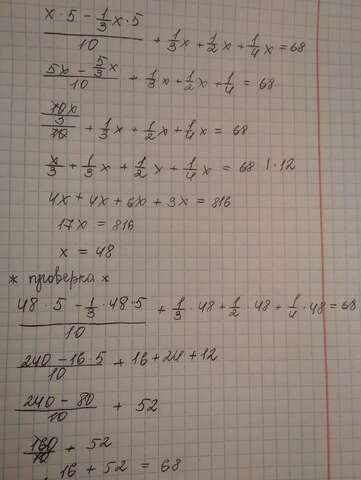 x · 5 − 1/3 x · 5 / 10 + 1/3 x + 1/2 x + 1/4 x = 68
5x − 5/3 x / 10 + 1/3 x + 1/2 x + 1/4 = 68
10x/3 / 10 + 1/3 x + 1/2 x + 1/4 x = 68
x/3 + 1/3 x + 1/2 x + 1/4 x = 68 | · 12
4x + 4x + 6x + 3x = 816
17x = 816
x = 48
* проверка *
48 · 5 − 1/3 · 48 · 5 / 10 + 1/3 · 48 + 1/2 · 48 + 1/4 · 48 = 68
240 − 16 · 5 / 10 + 16 + 24 + 12
240 − 80 / 10 + 52
160/10 + 52
16 + 52 = 68